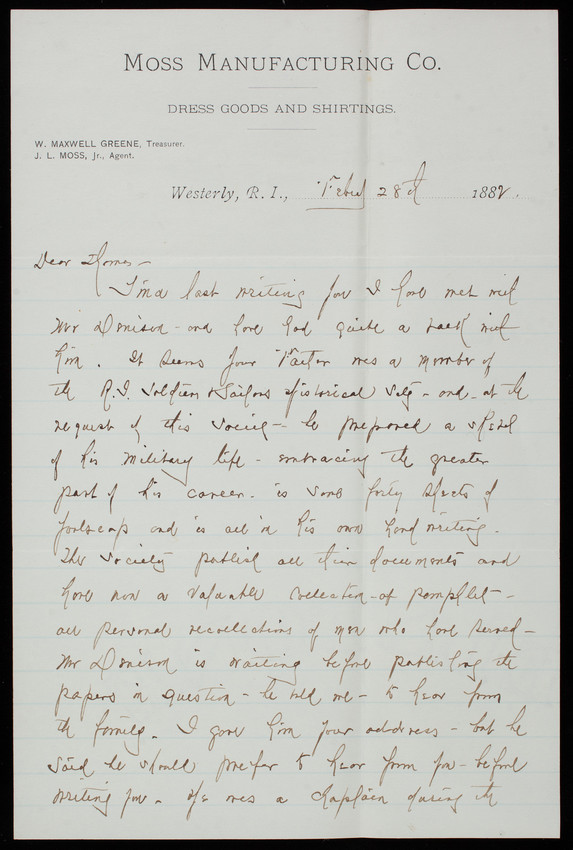 MOSS MANUFACTURING CO.
DRESS GOODS AND SHIRTINGS.
W. MAXWELL GREENE, Treasurer.
J. L. MOSS, Jr., Agent.
Westerly, R. I., Feby 28th 1882.
Dear
Since last writing you I have met with
Mr Denison - and have had quite a talk with
him. It seems your Father was a member of
the R.I. Soldiers & Sailors Historical Soty - and - at the
request of this Society - he prepared a sketch
of his military life - embracing the greater
part of his career. is some forty sheets of
foolscap and is all in his own hand writing.
The Society publish all their documents and
have now a valuable collection of pamphlet -
all personal recollections of men who have served -
Mr Denison is waiting before publishing the
papers in question - he told me - to hear from
the family. I gave him your address - but he
said he should prefer to hear from you - before
writing you. He was a Chaplain during the